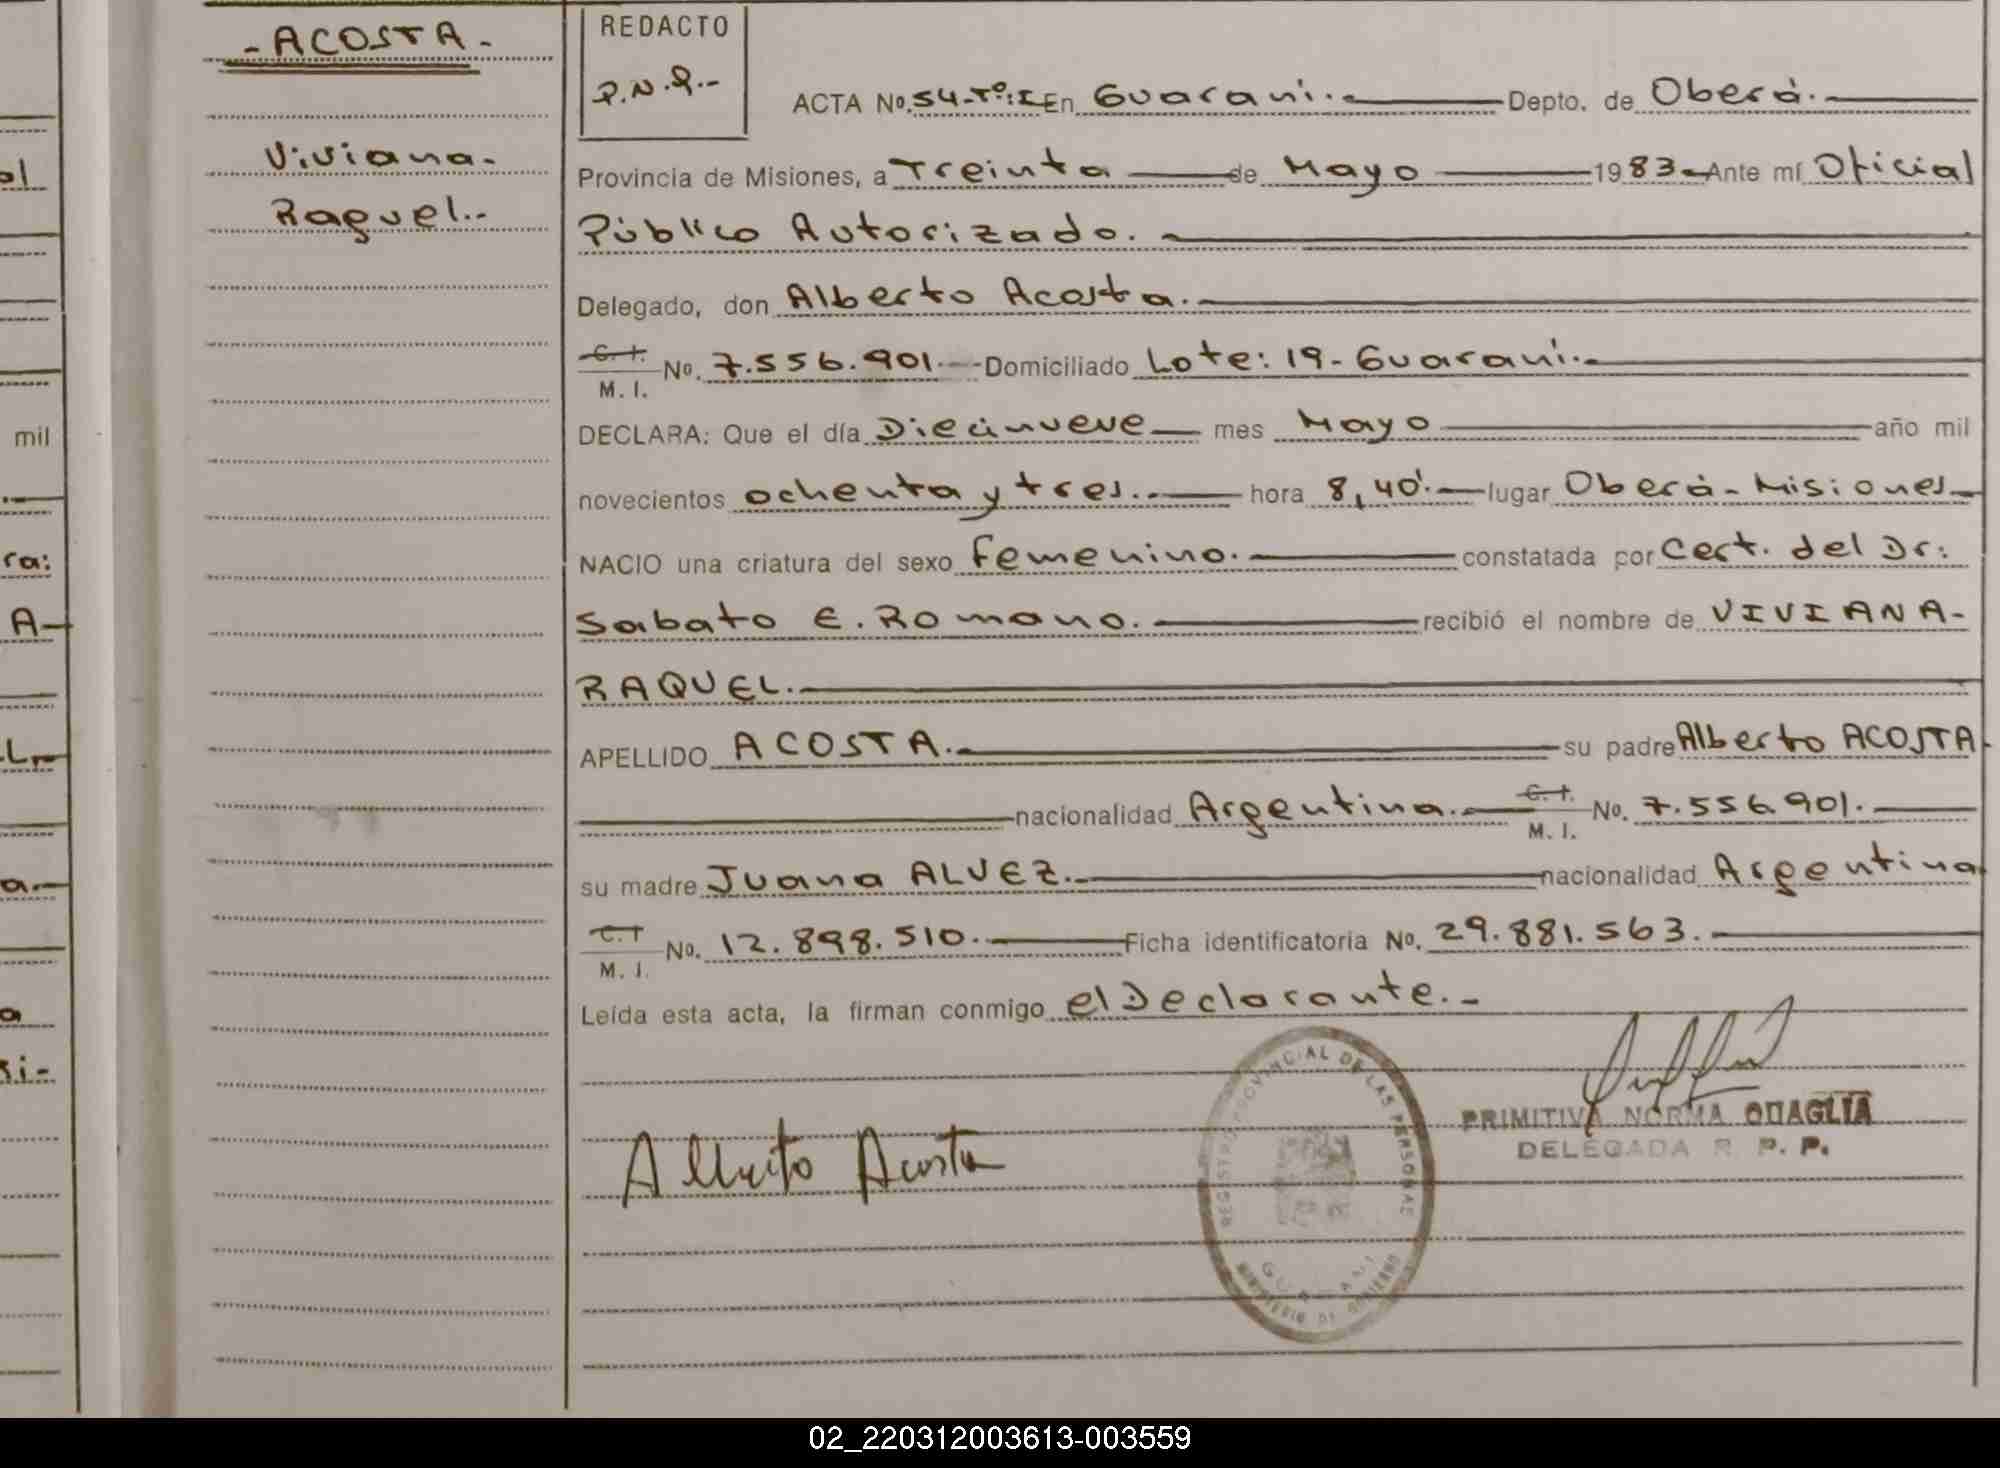 -ACOSTA-
Viviana-
Raquel.-
REDACTO
P.N.Q.-
ACTA No. 54-Tº:I En Guaraní.- Depto. de Oberá.-
Provincia de Misiones, a Treinta de Mayo 1983- Ante mí Oficial
Público Autorizado.-
Delegado, don Alberto Acosta.-
C. I.
M. I. No. 7.556.901.- Domiciliado Lote: 19- Guaraní.-
DECLARA: Que el día Diecinueve mes Mayo año mil
novecientos ochenta y tres.- hora 8,40'.- lugar Oberá-Misiones-
NACIO una criatura del sexo femenino.- constatada por Cert. del Dr:
Sabato E. Romano.- recibió el nombre de VIVIANA-
RAQUEL.-
APELLIDO ACOSTA.- su padre Alberto ACOSTA-
nacionalidad Argentina.- C. I.
M. I. No. 7.556.901.-
su madre Juana ALVEZ.- nacionalidad Argentina
C. I
M. I. No. 12.898.510.- Ficha identificatoria No. 29.881.563.-
Leída esta acta, la firman conmigo el Declarante.-
Alberto Acosta
REGISTRO PROVINCIAL DE LAS PERSONAS
GUARANI
MINISTERIO DE GOBIERNO
PRIMITIVA NORMA QUAGLIA
DELEGADA R. P. P.
mil
ra:
A-
L.-
a.-
a
si-
02_220312003613-003559